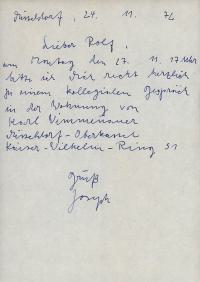 Düsseldorf, 24. 11. 72
Lieber Rolf,
am Montag den 27. 11. 17 Uhr
bitte ich Dich recht herzlich
zu einem kollegialen Gespräch
in der Wohnung von
Karl Vimmenauer
Düsseldorf - Oberkassel
Kaiser - Wilhelm - Ring 31
Gruß
Joseph